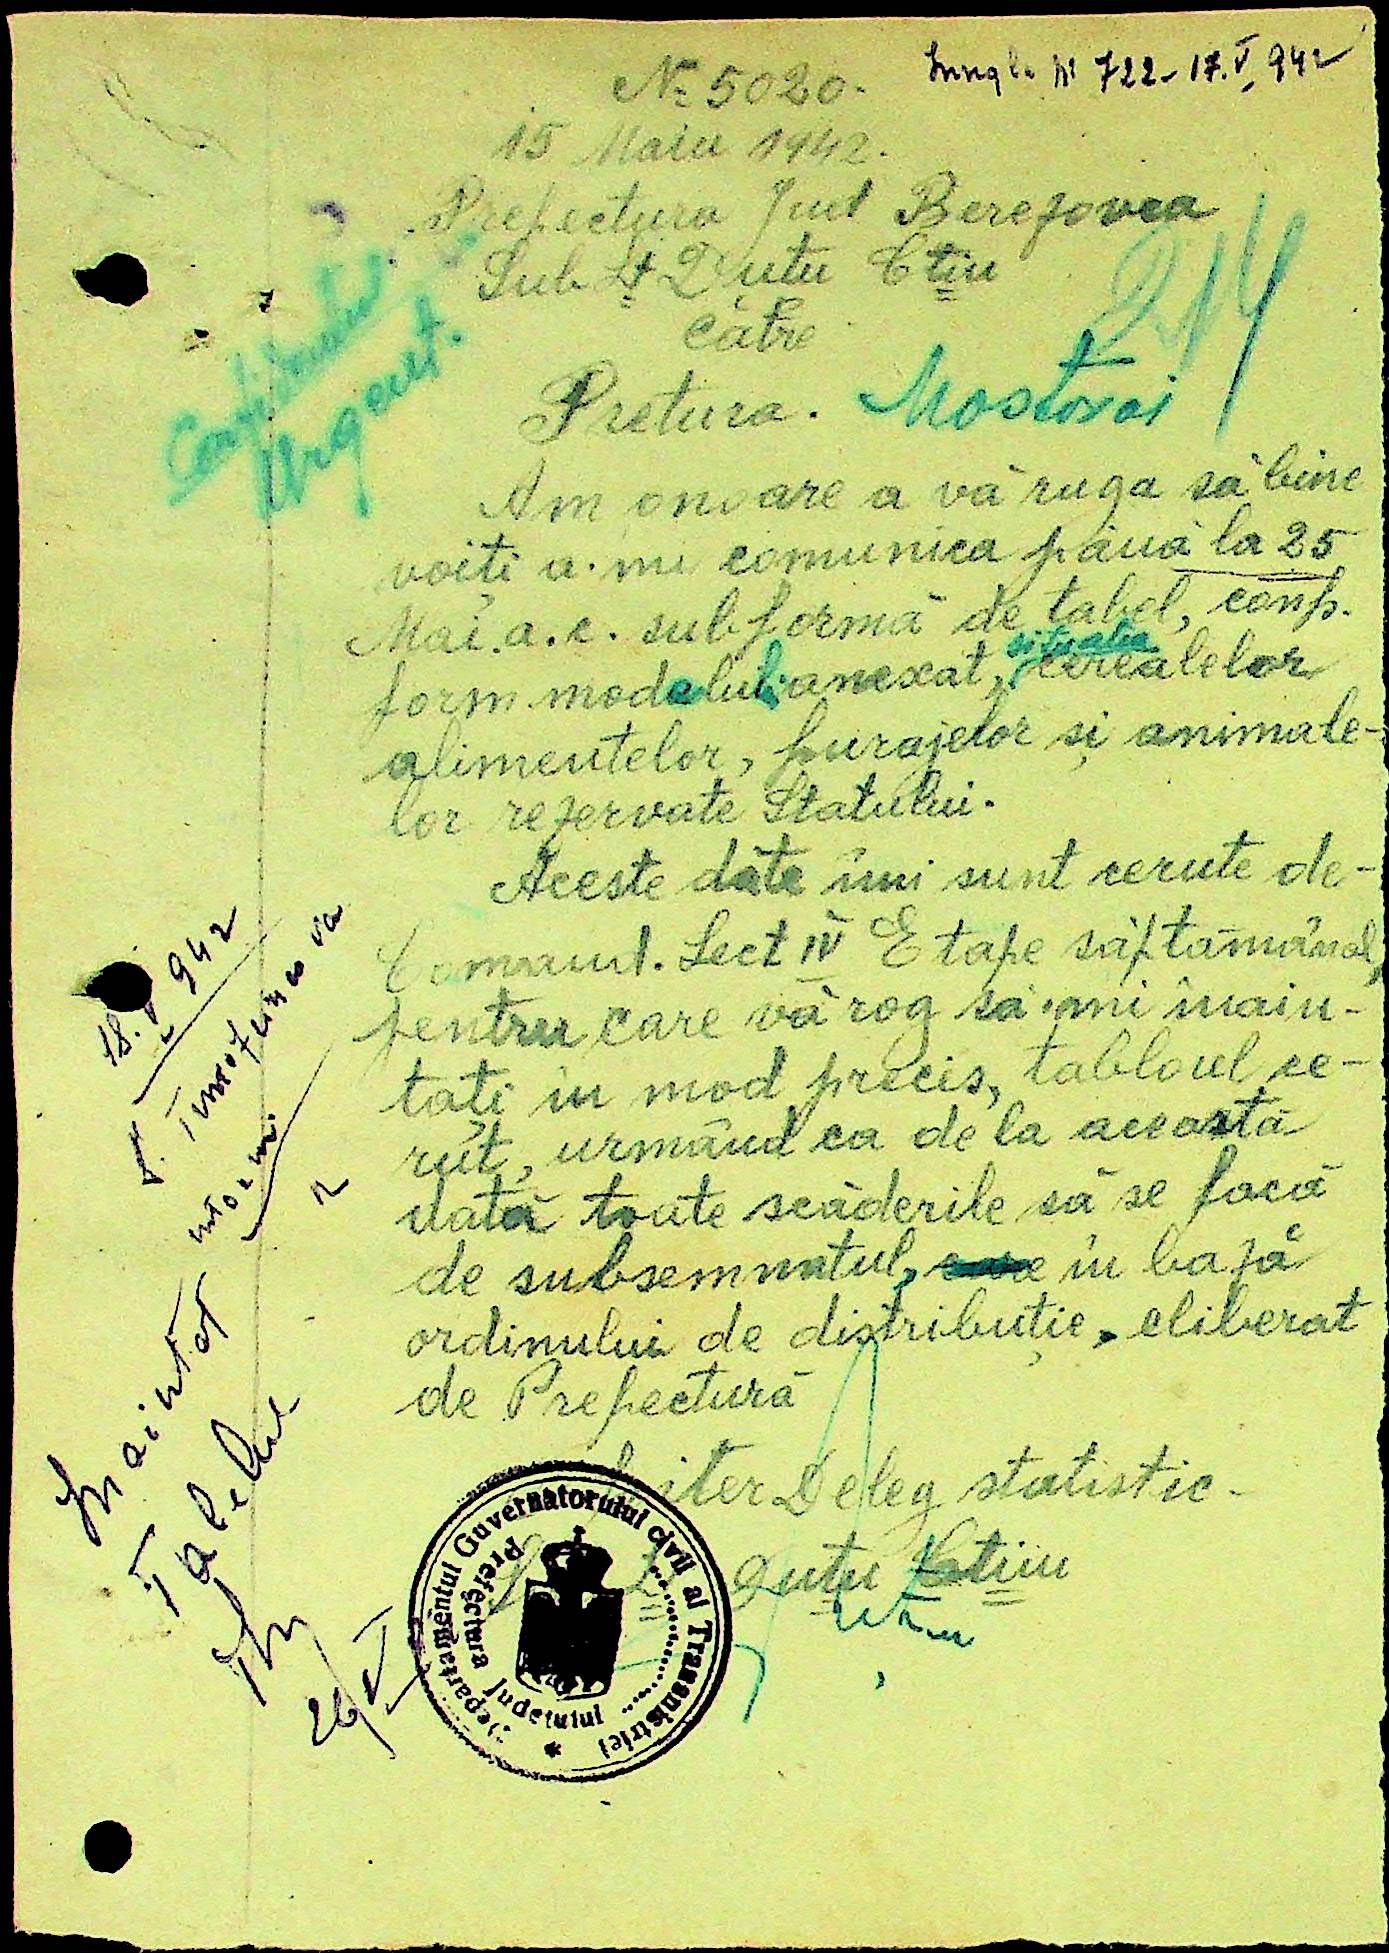 No 5020.
15 Maiu 1942.
No 722 - 17.V.942
Prefectura Jud Berezovca
Sub. Lt Duțu Ctin
Către
Pretura. Mostovoi
Confidential
Urgent.
Am onoare a vă ruga să bine
voiți a-mi comunica până la 25
Mai a.c. sub formă de tabel, con-
form modelului anexat, situatia cerealelor
alimentelor, furajelor și animale-
lor rezervate Statului.
Aceste date îmi sunt cerute de-
Comand. Sect IV Etape săptămânal,
pentru care vă rog să-mi inain-
tați în mod precis, tabloul ce-
rut, urmând ca de la această
dată toate scăderile să se facă
de subsemnatul, în bază
ordinului de distribuție, eliberat
de Prefectură
Deleg statistic-
Duțu Ctin
18.V 942
Inaintat
Tabelul
26/V
Departamentul Guvernatorului civil al Transnistriei
Prefectura Judetului